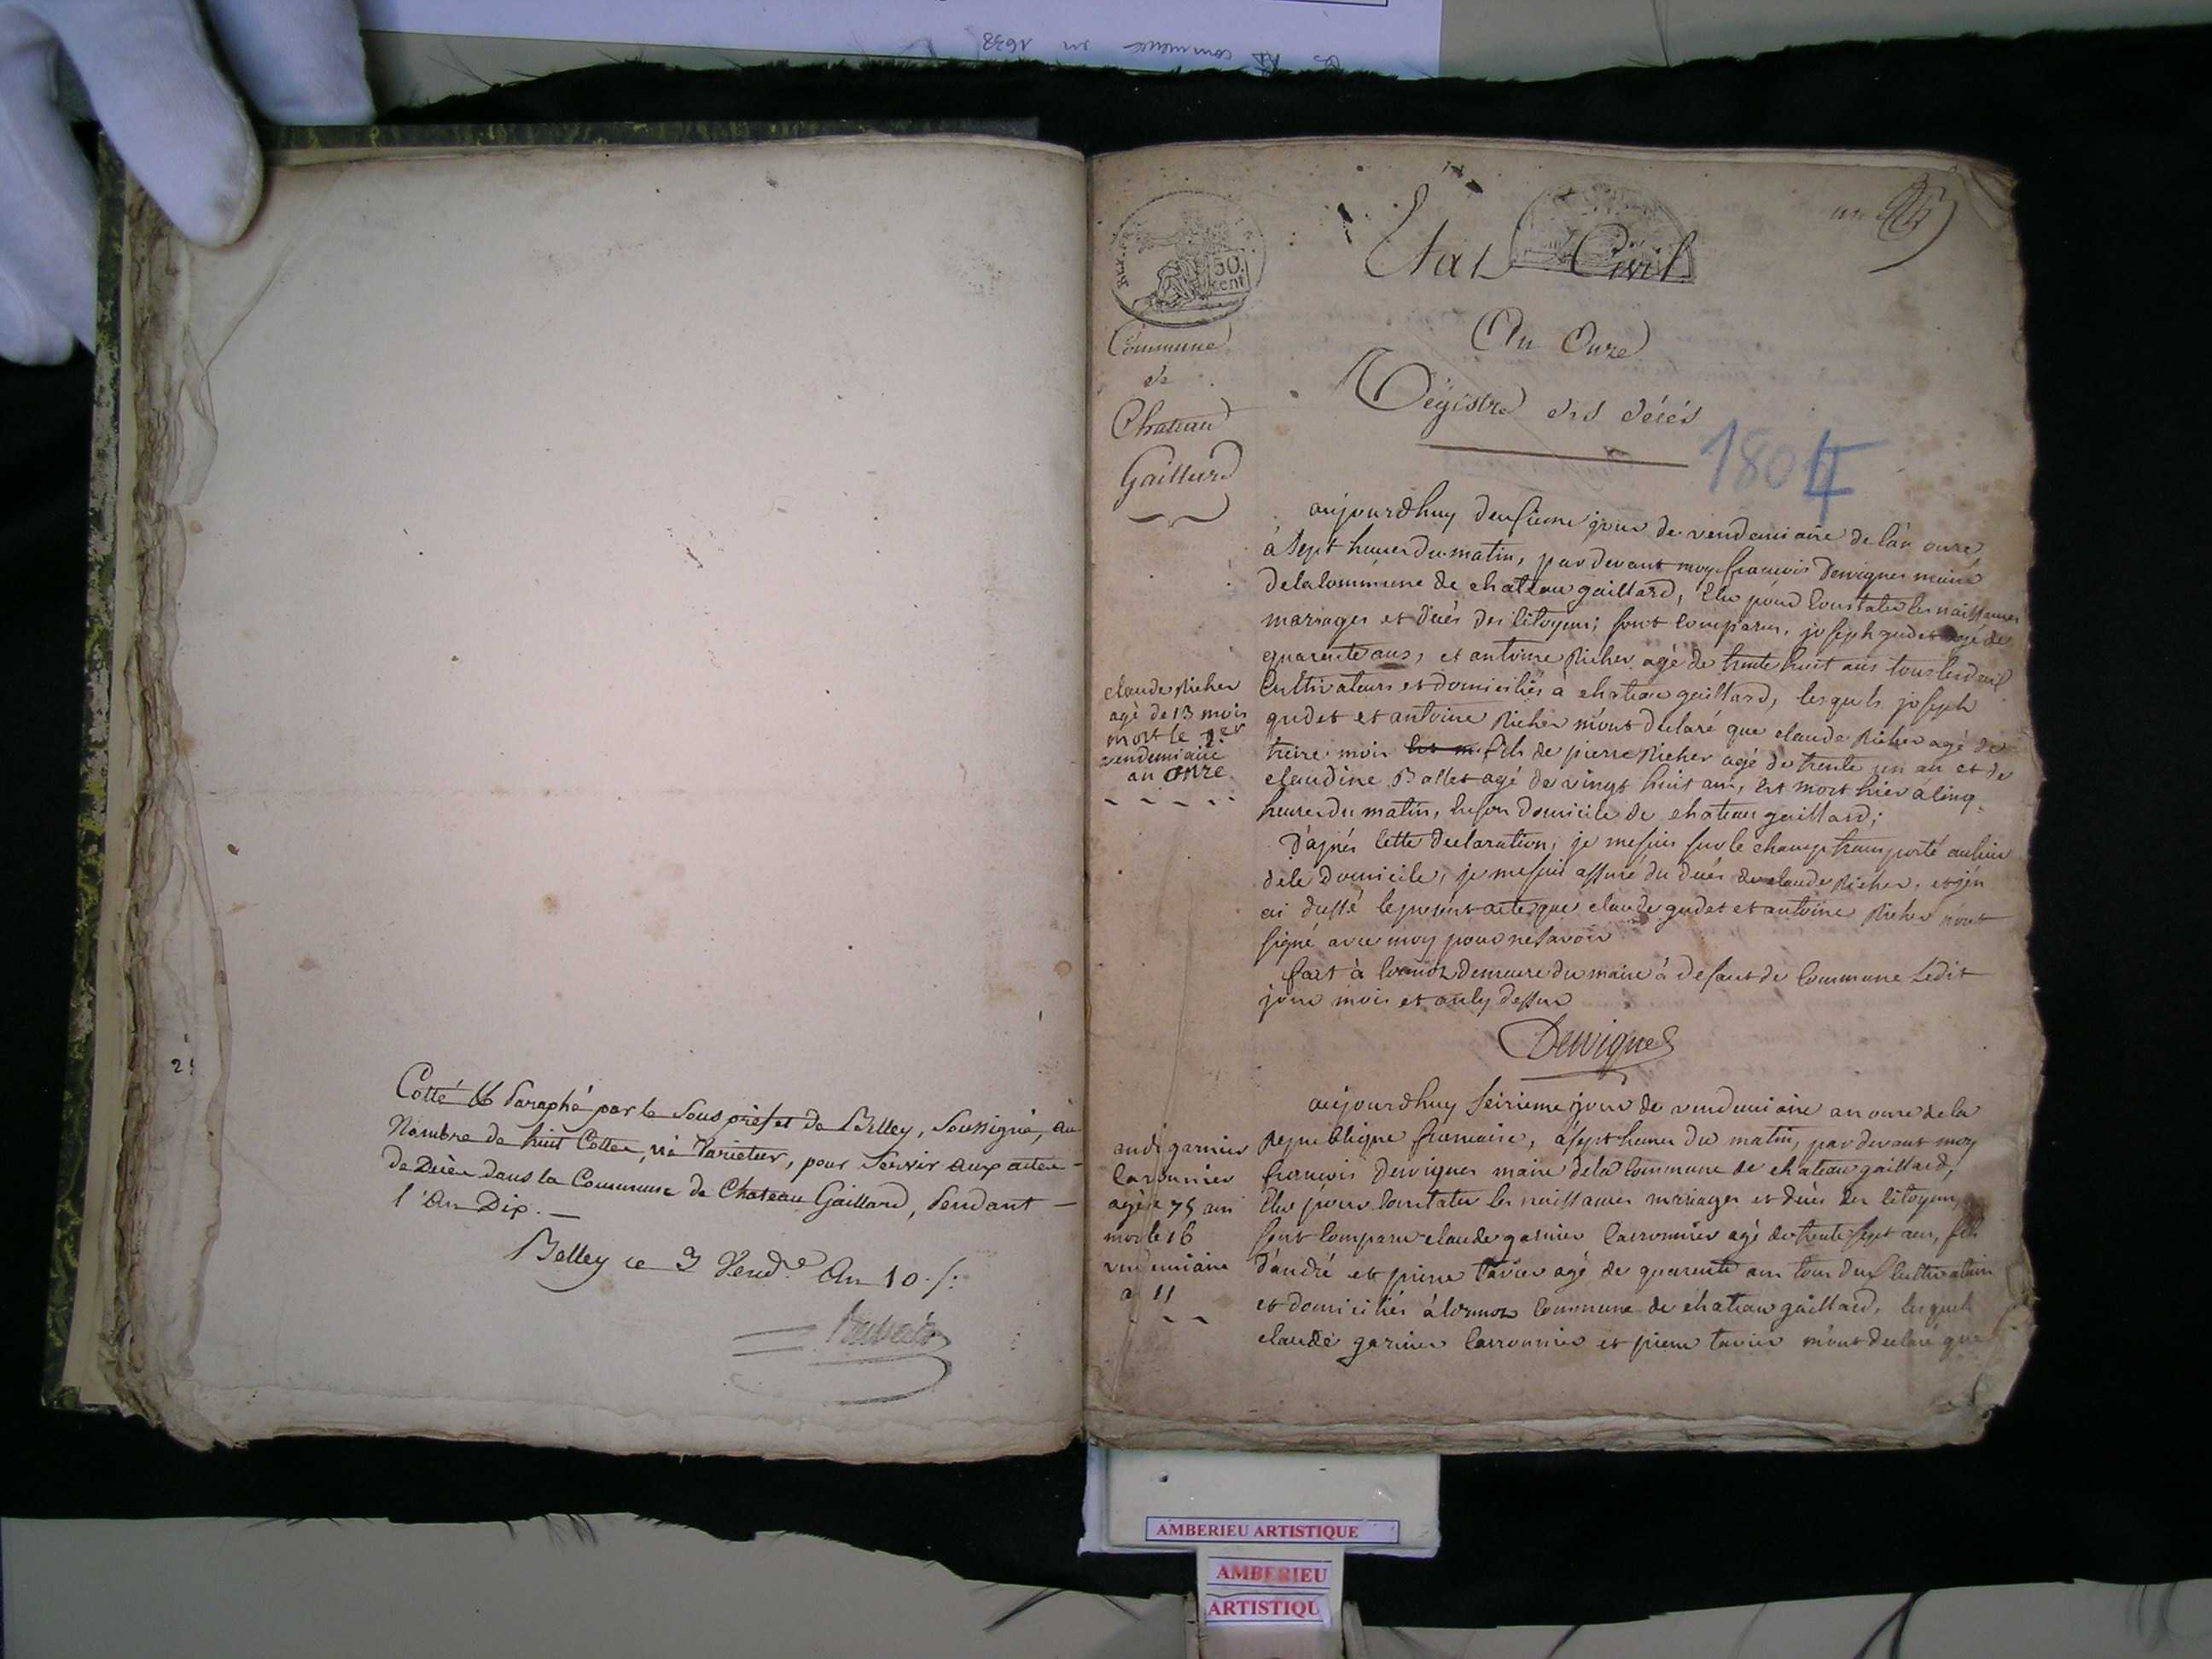 Cotté & Paraphé par le Sous préfet de Belley, Soussigné, au
Nombre de huit Cottes, né Varietur, pour Servir aux actes
de Décès dans la Commune de Chateau Gaillard, Pendant
l'An Dix.
Belley ce 3 Vend.re An 10./.
50.
cent
Commune
de
Chateau
Gaillard
Etat Civil
An Onze
Régistre des décés
1804
aujourdhuy deusieme jour de vendemiaire de lan onze
à sept heures du matin, par devant moy francois Dervignes maire
de la commune de chateau gaillard, élu pour constater les naissances
mariages et décés des citoyens; sont comparus, joseph gudet agé de
quarente ans, et antoine Richer agé de trente huit ans tous les deux
cultivateurs et domiciliés à chateau gaillard, lesquels joseph
gudet et antoine Richer m'ont declaré que claude Richer agé de
treize mois fils de pierre Richer agé de trente un an et de
claudine Bollet agé de vingt huit ans, est mort hier à cinq
heures du matin, en son domicile de chateau gaillard;
D'après cette declaration, je me suis sur le champ transporté au lieu
de ce domicile, je me suis assuré du décés de claude Richer, et j'en
ai dressé le present acte que claude gudet et antoine Richer n'ont
signé avec moy pour ne savoir
fait à cormoz demeure du maire à defaut de commune Ledit
jour mois et an cy dessus
Dervignes
claude Richer
agé de 13 mois
mort le 1er
vendemiaire
an onze
aujourdhuy seizieme jour de vendemiaire an onze de la
Republique francaise, à sept heures du matin, par devant moy
francois Dervignes maire de la commune de chateau gaillard,
élu pour constater les naissances mariages et décés des citoyens,
sont comparu claude garnier carronnier agé de trente sept ans, fils
d'andré et pierre tavier agé de quarente ans tous deux cultivateurs
et domiciliés à cormoz commune de chateau gaillard, lesquels
claude garnier carronnier et pierre tavier m'ont declaré que
andré garnier
carronnier
agé de 75 ans
mort le 16
vendemiaire
a 11
AMBERIEU ARTISTIQUE
AMBERIEU
ARTISTIQU